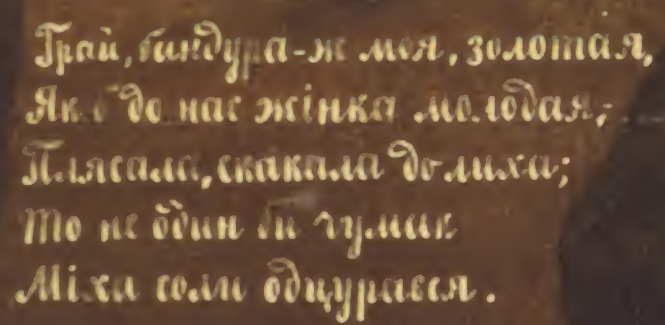 Грай, бандура-ж моя, золотая,
Як б до нас жінка молодая;
Плясала, скакала до лиха;
То не один би чумак
Міха соли одцурався.